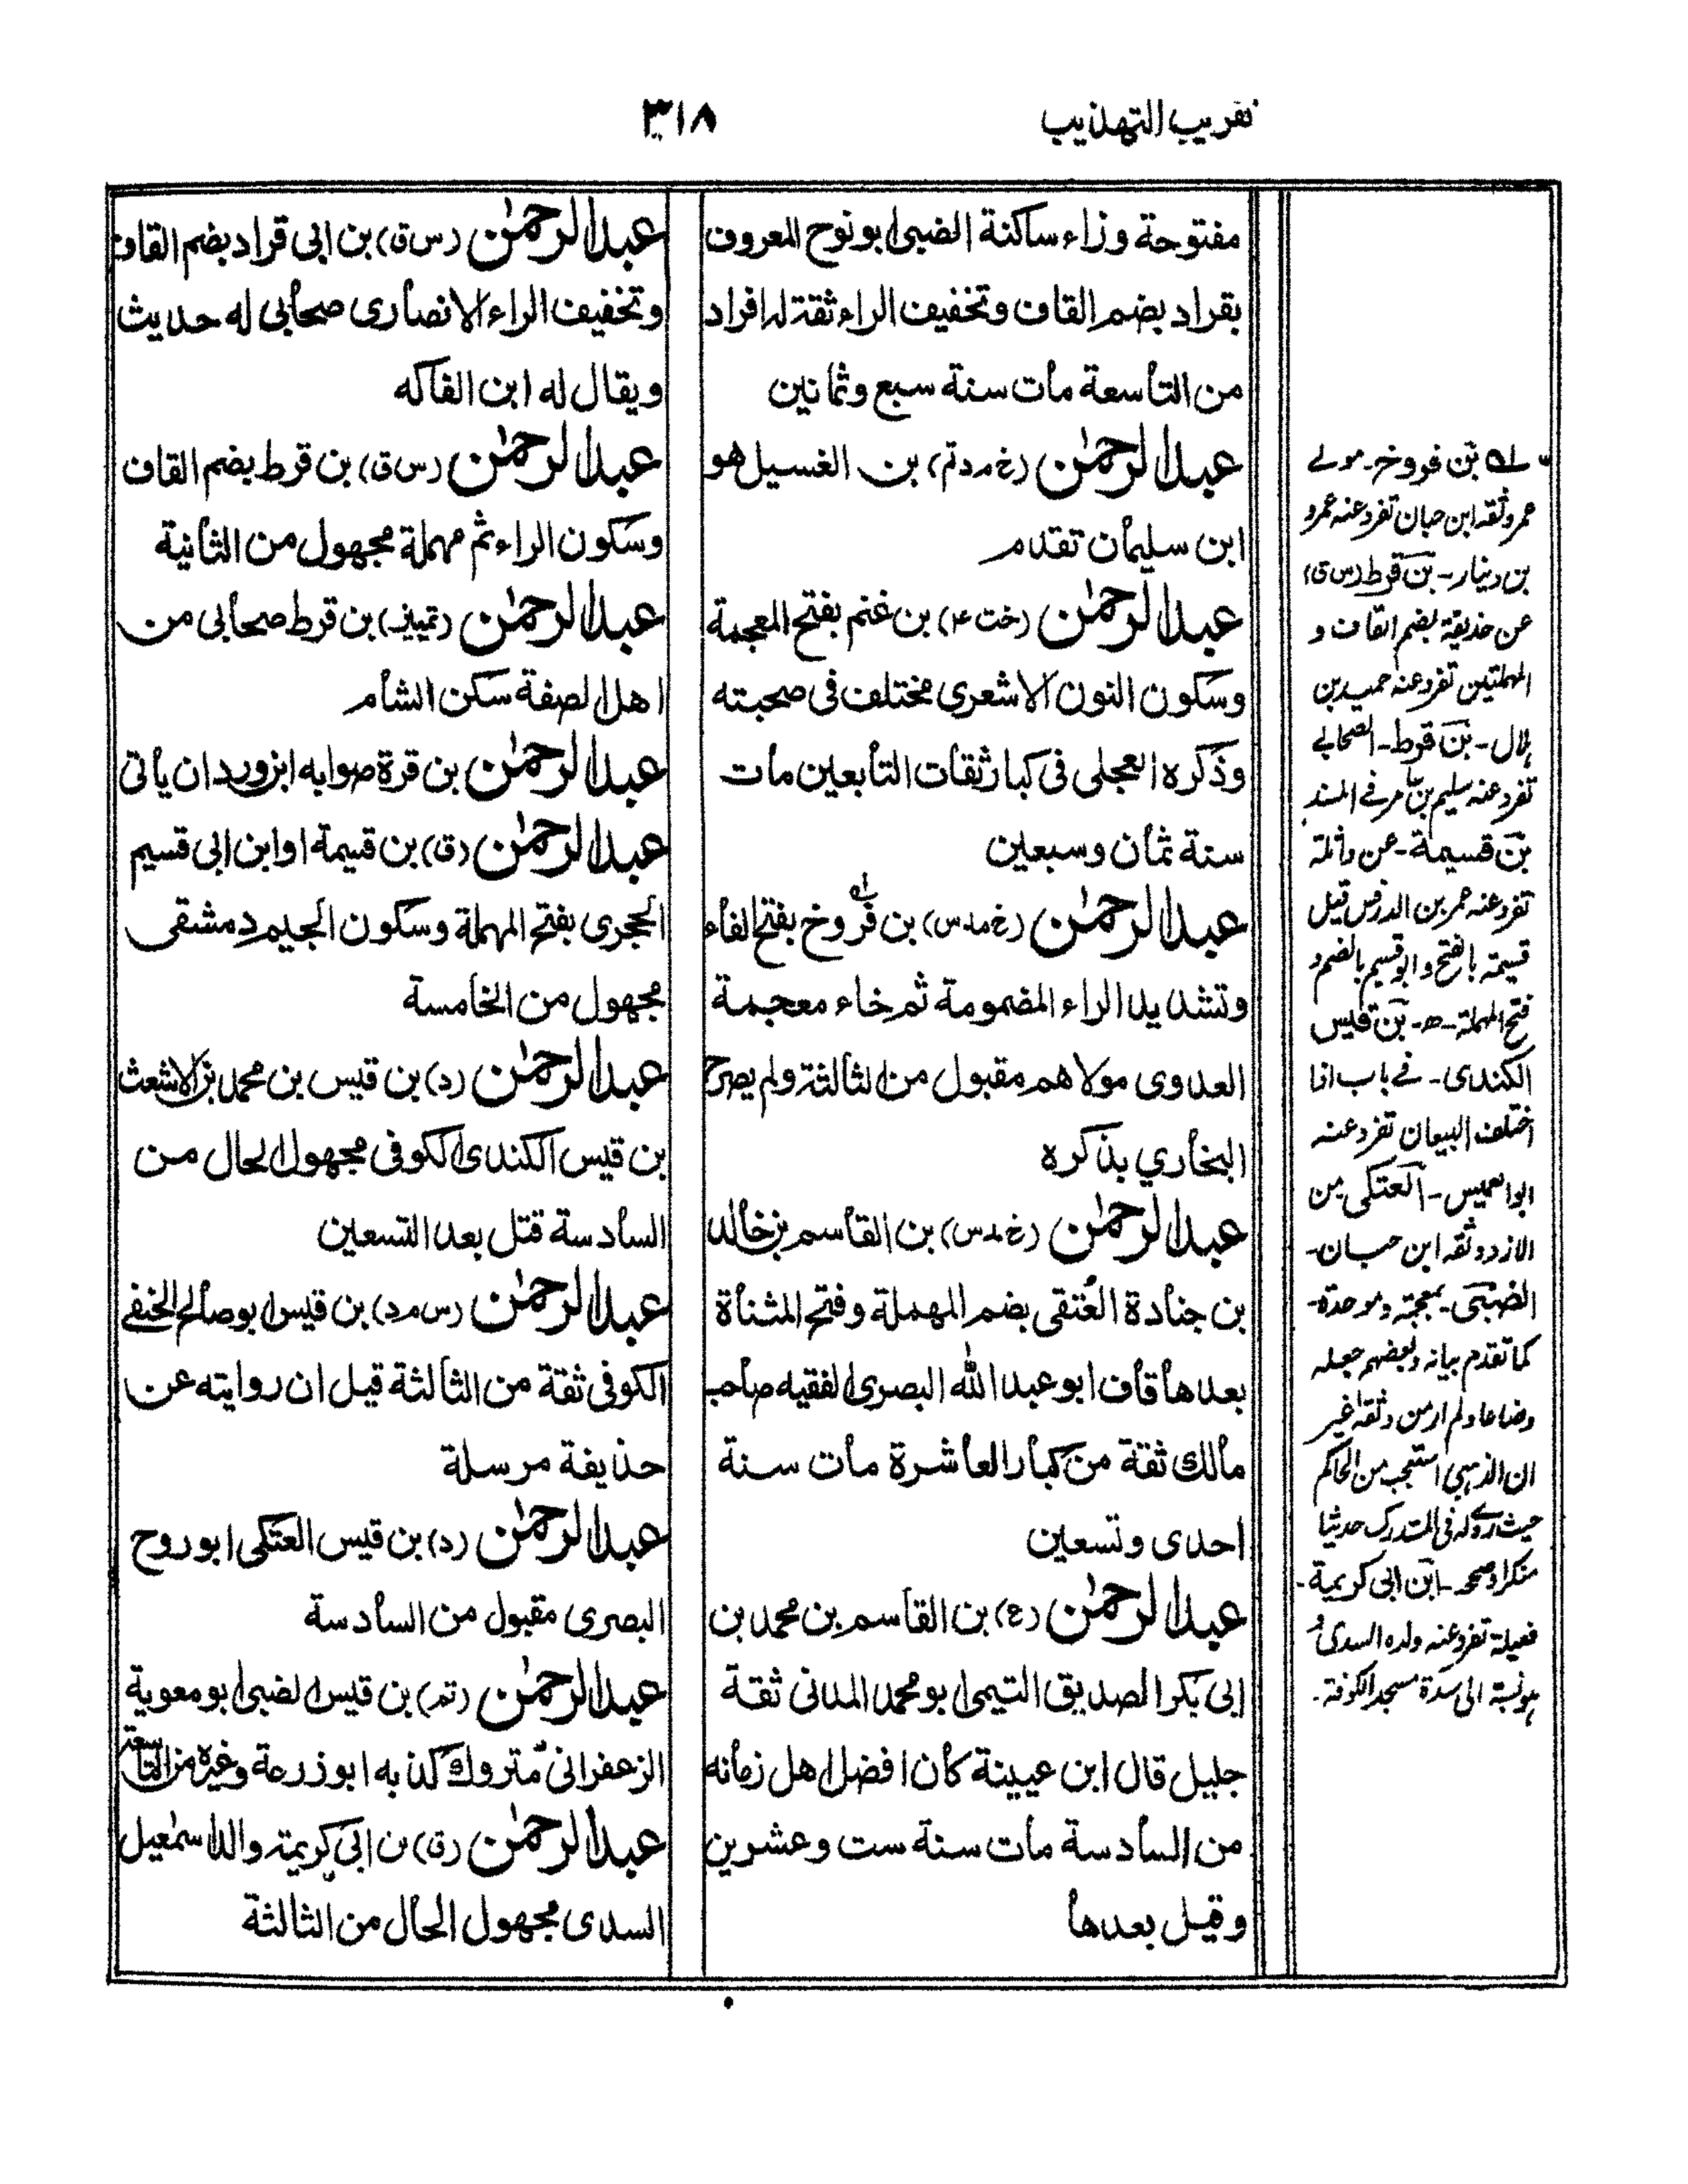 تقريب التهذيب
٣١٨
مفتوحة وزاء ساكنة الضبى ابو نوح المعروف
بقراد بضم القاف وتخفيف الراء ثقة له افراد
من التاسعة مات سنة سبع وثمانين
عبد الرحمٰن (خ م د تم) بن الغسيل هو
ابن سليمان تقدم
عبد الرحمٰن (خت ۴) بن غنم بفتح المعجمة
وسكون النون الاشعرى مختلف فى صحبته
وذكره العجلى فى كبار ثقات التابعين مات
سنة ثمان وسبعين
عبد الرحمٰن (خ مد س) بن فروخ بفتح الفاء
وتشديد الراء المضمومة ثم خاء معجمة
العدوى مولاهم مقبول من الثالثة ولم يصرح
البخاري بذكره
عبد الرحمٰن (خ مد س) بن القاسم بن خالد
بن جنادة العُتقى بضم المهملة وفتح المثناة
بعدها قاف ابو عبد الله البصرى الفقيه صاحب
مالك ثقة من كبار العاشرة مات سنة
احدى وتسعين
عبد الرحمٰن (ع) بن القاسم بن محمد بن
ابى بكر الصديق التيمى ابو محمد المدنى ثقة
جليل قال ابن عيينة كان افضل اهل زمانه
من السادسة مات سنة ست وعشرين
وقيل بعدها
عبد الرحمٰن (س ق) بن ابى قراد بضم القاف
وتخفيف الراء الانصارى صحابى له حديث
ويقال له ابن الفاكه
عبد الرحمٰن (س ق) بن قرط بضم القاف
وسكون الراء ثم مهملة مجهول من الثانية
عبد الرحمٰن (تمييز) بن قرط صحابى من
اهل الصفة سكن الشام
عبد الرحمٰن بن قرة صوابه ابن وردان ياتى
عبد الرحمٰن (ق) بن قسيمة او ابن ابى قسيم
الحجرى بفتح المهملة وسكون الجيم دمشقى
مجهول من الخامسة
عبد الرحمٰن (د) بن قيس بن محمد بن الاشعث
بن قيس الكندى الكوفى مجهول الحال من
السادسة قتل بعد التسعين
عبد الرحمٰن (س م د) بن قيس ابو صالح الحنفى
الكوفى ثقة من الثالثة قيل ان روايته عن
حذيفة مرسلة
عبد الرحمٰن (د) بن قيس العتكى ابو روح
البصرى مقبول من السادسة
عبد الرحمٰن (تم) بن قيس الضبى ابو معوية
الزعفرانى متروك كذبه ابو زرعة وغيره من التاسعة
عبد الرحمٰن (ق) بن ابى كريمة والد اسمٰعيل
السدى مجهول الحال من الثالثة
له بن فروخ۔ مولى
عمر وثقه ابن حبان تفرد عنه عمرو
بن دينار۔ بن قرط (س ق)
عن حذيفة بضم القاف و
المهملتين تفرد عنه حميد بن
هلال۔ بن قرط۔ الصحابى
تفرد عنه سليم بن عامر فى المسند
بن قسيمة۔ عن واثلة
تفرد عنه عمر بن الدرفس قيل
قسيمة بالفتح وابو قسيم بالضم و
فتح المهملة۔ بن قيس
الكندى۔ فى باب اذا
اختلف البيعان تفرد عنه
ابو العميس۔ العتكى من
الازد وثقه ابن حبان۔
الضبى۔ بمعجمة وموحدة۔
كما تقدم بيانه وبعضهم جعله
وضاعا ولم ار من وثقه غير
ان الذهبى استعجب من الحاكم
حيث روى له فى المستدرك حديثا
منكرا وصححه۔ ابن ابى كريمة۔
تفرد عنه ولده السدى
هو نسبة الى سدة مسجد الكوفة۔